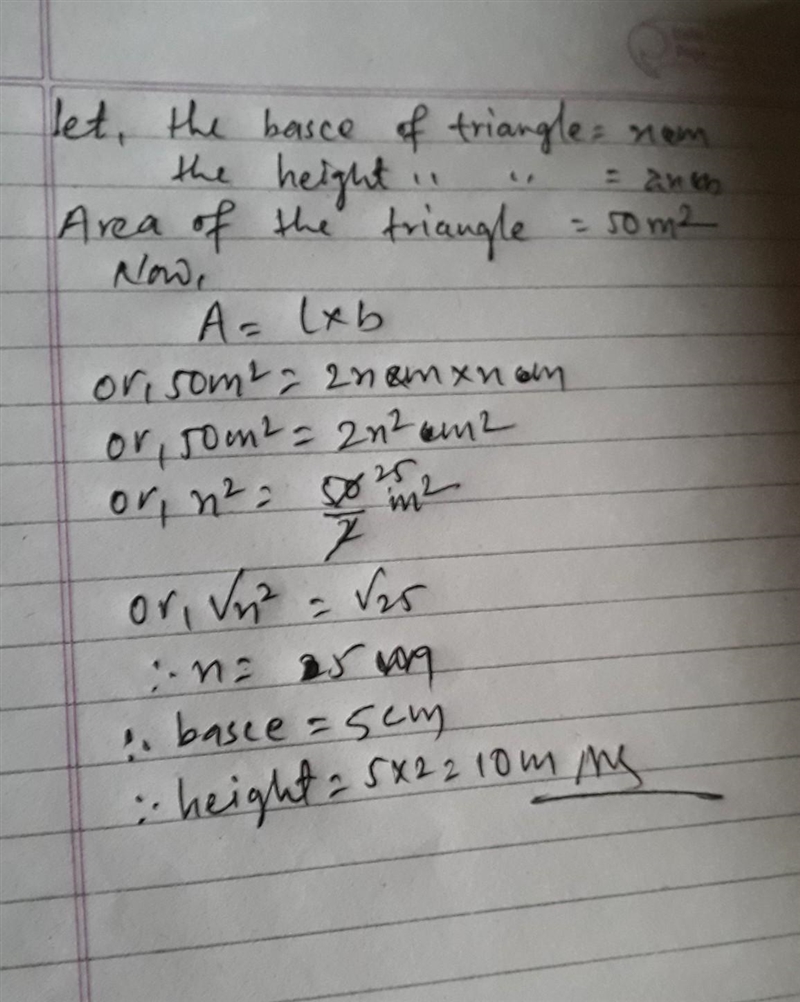 let, the basce of triangle = x cm
the height " " = 2x cm
Area of the triangle = 50 m²
Now,
A = l×b
or, 50m² = 2x cm × x cm
or, 50m² = 2x² cm²
or, x² = 50/2 25 m²
or, √x² = √25
∴ x = 5
∴ basce = 5cm
∴ height = 5×2 = 10m Ans